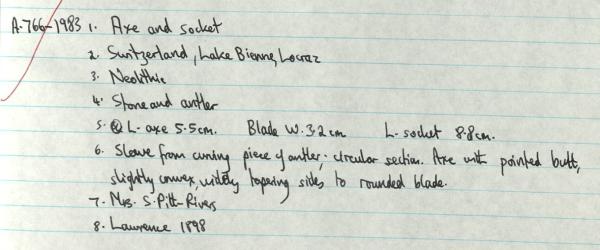 A.766-1983 1. Axe and socket
2. Switzerland, Lake Bienne, Locraz
3. Neolithic
4. Stone and antler
5. L- axe 5.5cm. Blade W. 3.2cm L- socket 8.8cm.
6. Sleeve from curving piece of antler; circular section. Axe with pointed butt,
slightly convex, widely tapering sides to rounded blade.
7. Mrs. S. Pitt-Rivers
8. Lawrence 1898